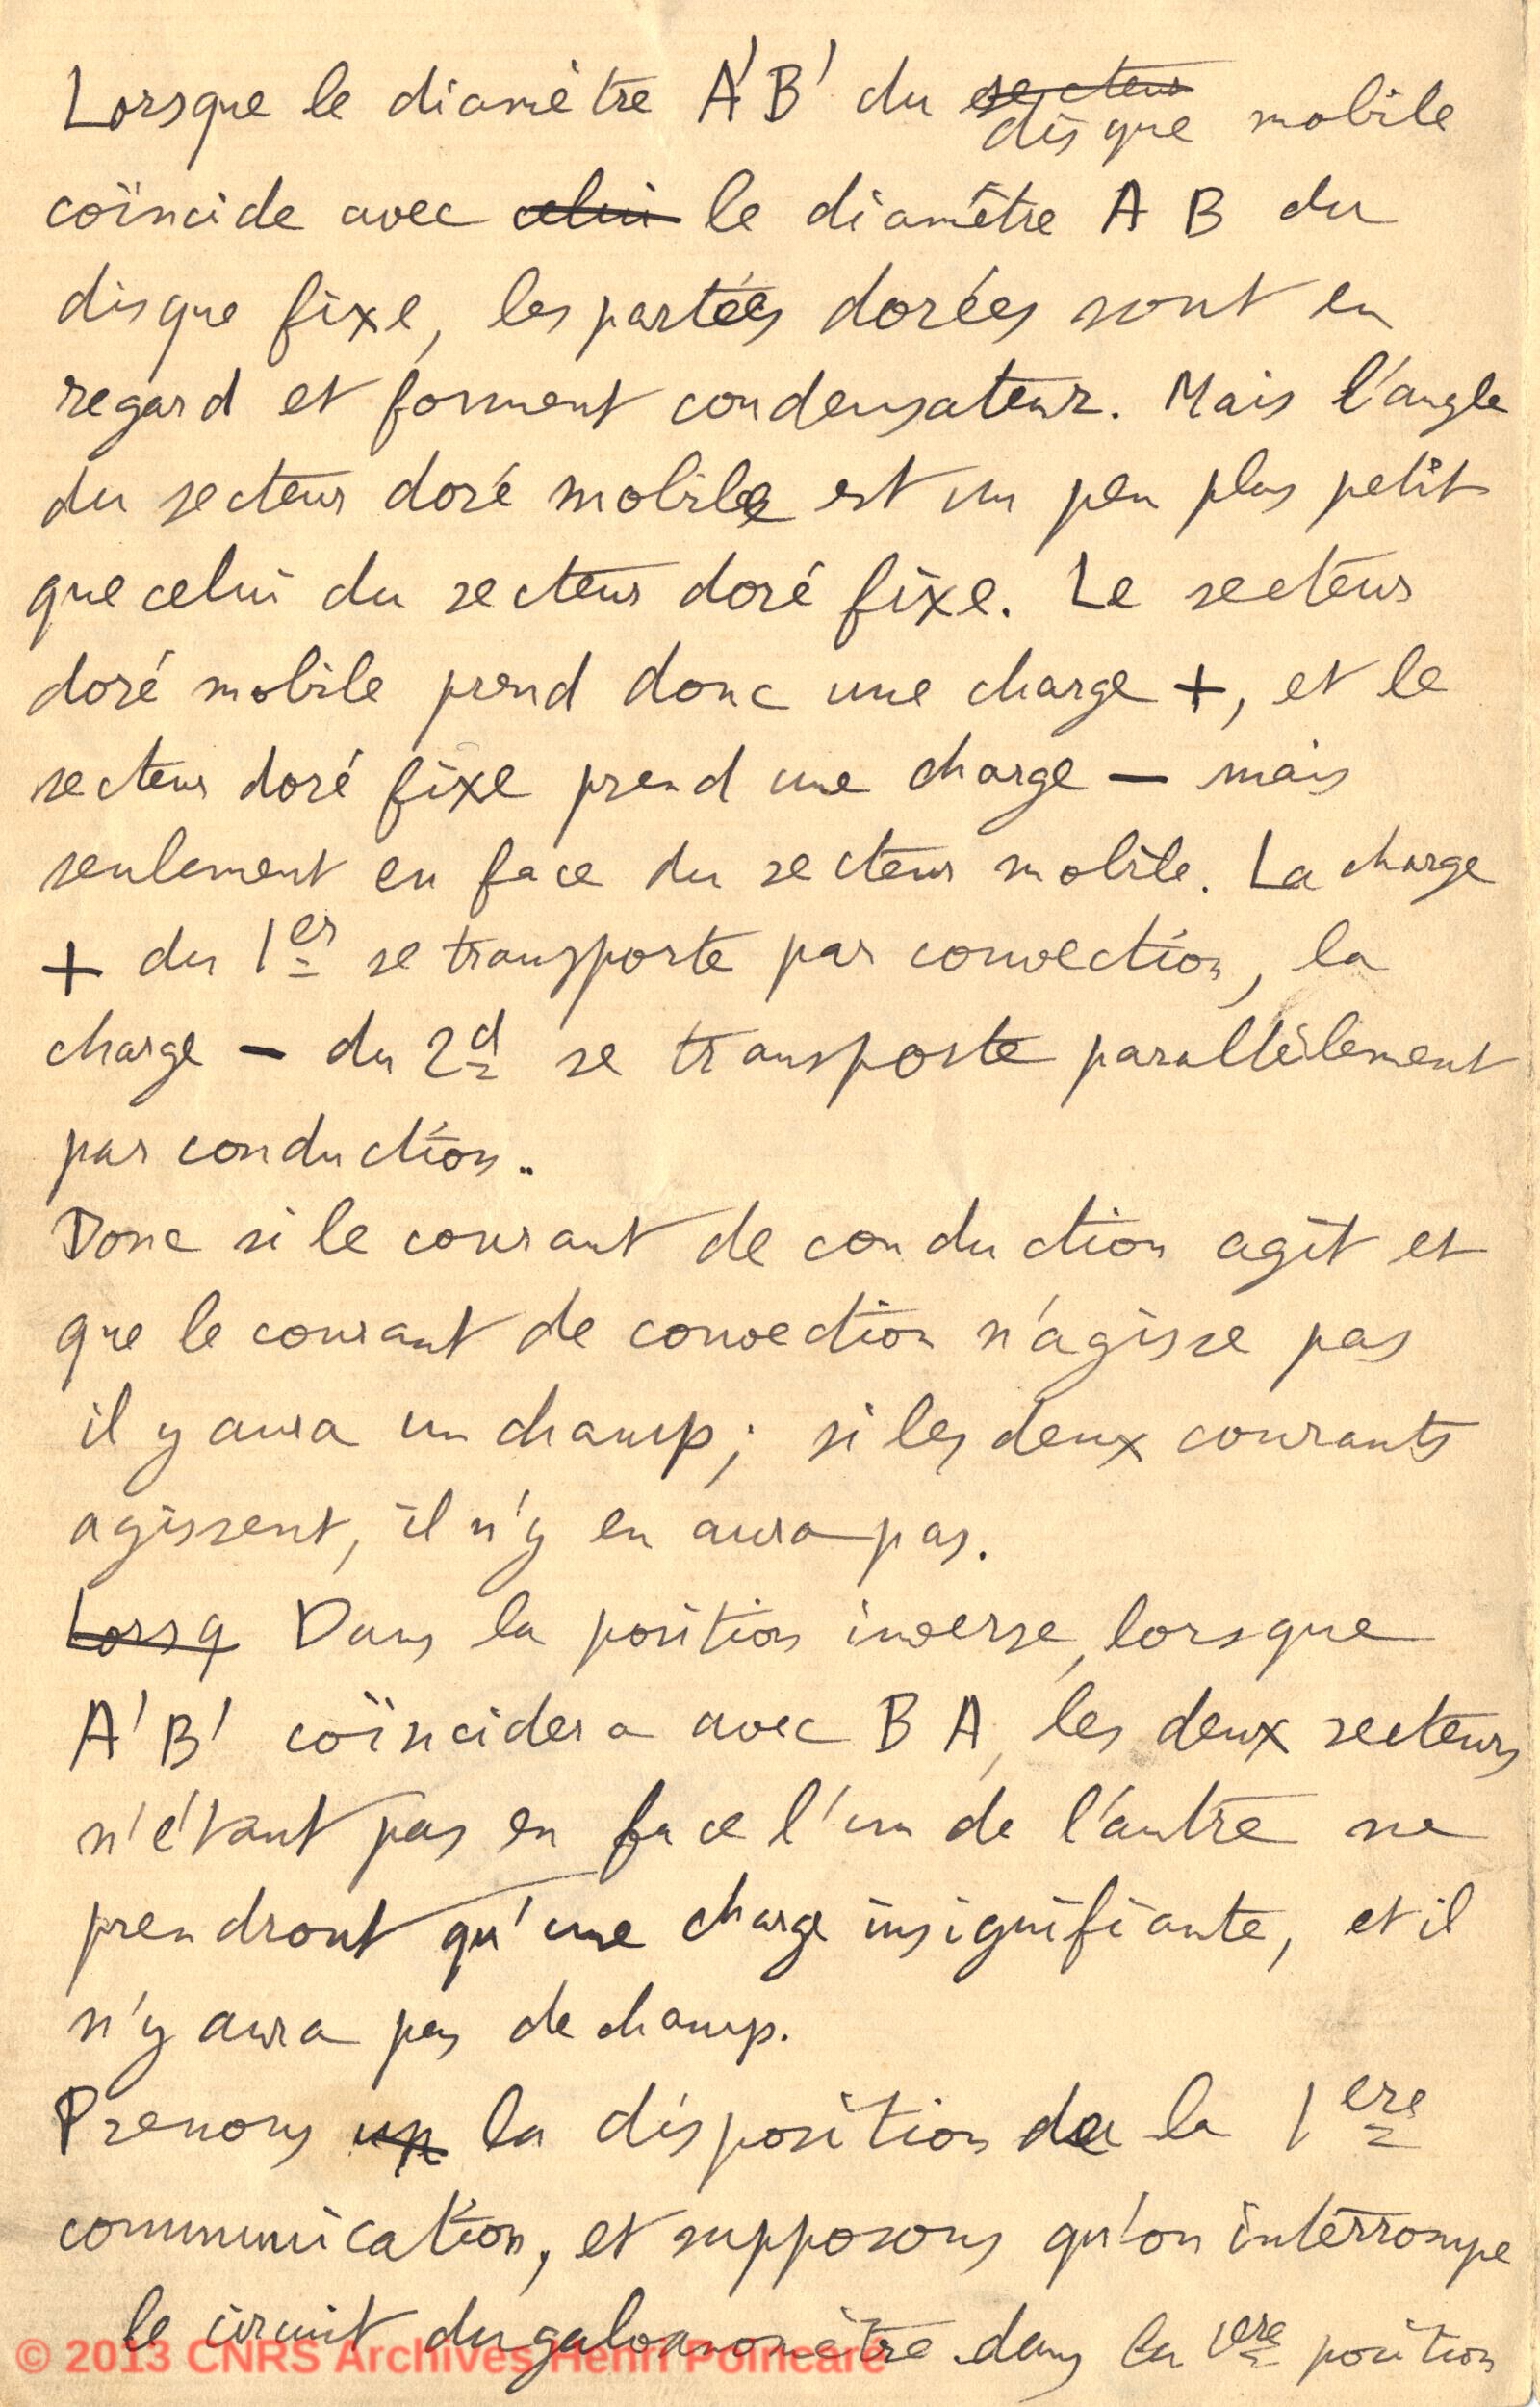 Lorsque le diamètre A'B' du secteur disque mobile
coïncide avec celui le diamètre A B du
disque fixe, les partées dorées sont en
regard et forment condensateur. Mais l'angle
du secteur doré mobile est un peu plus petit
que celui du secteur doré fixe. Le secteur
doré mobile prend donc une charge +, et le
secteur doré fixe prend une charge — mais
seulement en face du secteur mobile. La charge
+ du 1er se transporte par convection, la
charge – du 2d se transporte parallèlement
par conduction..
Donc si le courant de conduction agit et
que le courant de convection n'agisse pas
il y aura un champ; si les deux courants
agissent, il n'y en aura pas.
Lorsq Dans la position inverse, lorsque
A'B' coïncidera avec B A, les deux secteurs
n'étant pas en face l'un de l'autre ne
prendront qu'une charge insignifiante, et il
n'y aura pas de champ.
Prenons un la disposition de la 1ere
communication, et supposons qu'on interrompe
le circuit du galvanomètre dans la 1ere position
© 2013 CNRS Archives Henri Poincaré